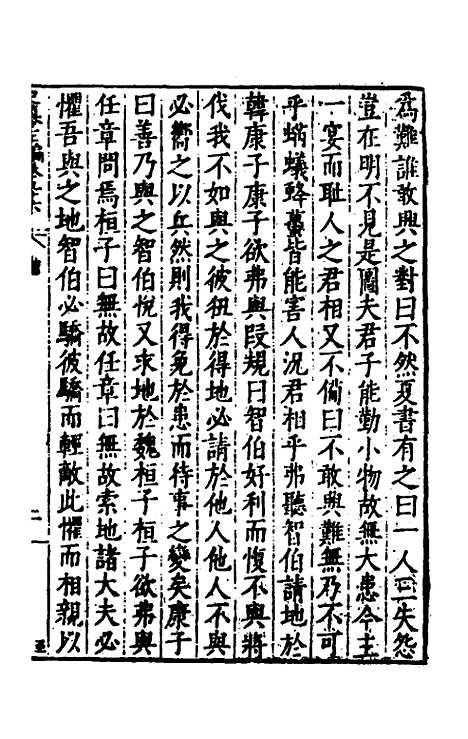 為難誰敢興之對曰不然夏書有之曰一人三失怨
豈在明不見是圖夫君子能勤小物故無大患今主
一宴而耻人之君相又不備曰不敢興難無乃不可
乎蜹蟻蜂蠆皆能害人況君相乎弗聽智伯請地於
韓康子康子欲弗與段規曰智伯好利而愎不與將
伐我不如與之彼狃於得地必請於他人他人不與
必嚮之以兵然則我得免於患而待事之變矣康子
曰善乃與之智伯悅又求地於魏桓子桓子欲弗與
任章問焉桓子曰無故任章曰無故索地諸大夫必
懼吾與之地智伯必驕彼驕而輕敵此懼而相親以